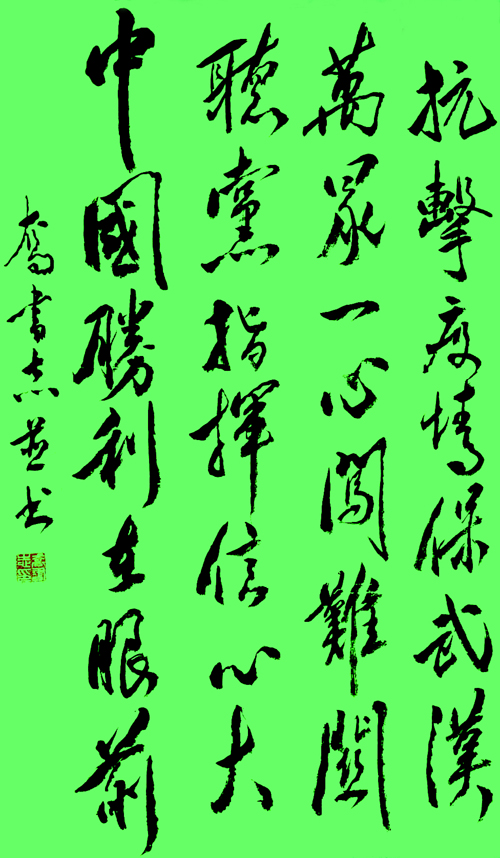 抗擊疫情保武漢
萬眾一心闖難關
聽黨指揮信心大
中國勝利在眼前
喬書志並书